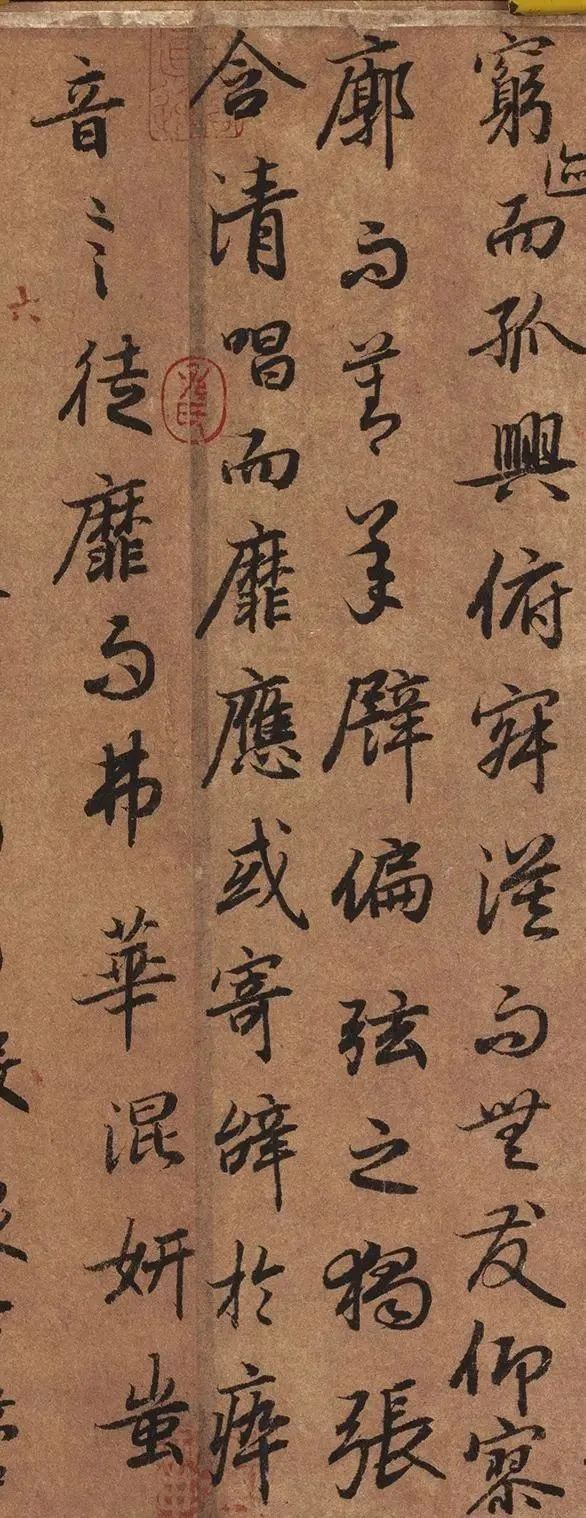 窮迹而孤興俯寂漠而無友仰寥
廓而莫承譬偏弦之獨張
含清唱而靡應或寄辭於瘁
音言徒靡而弗華混妍蚩